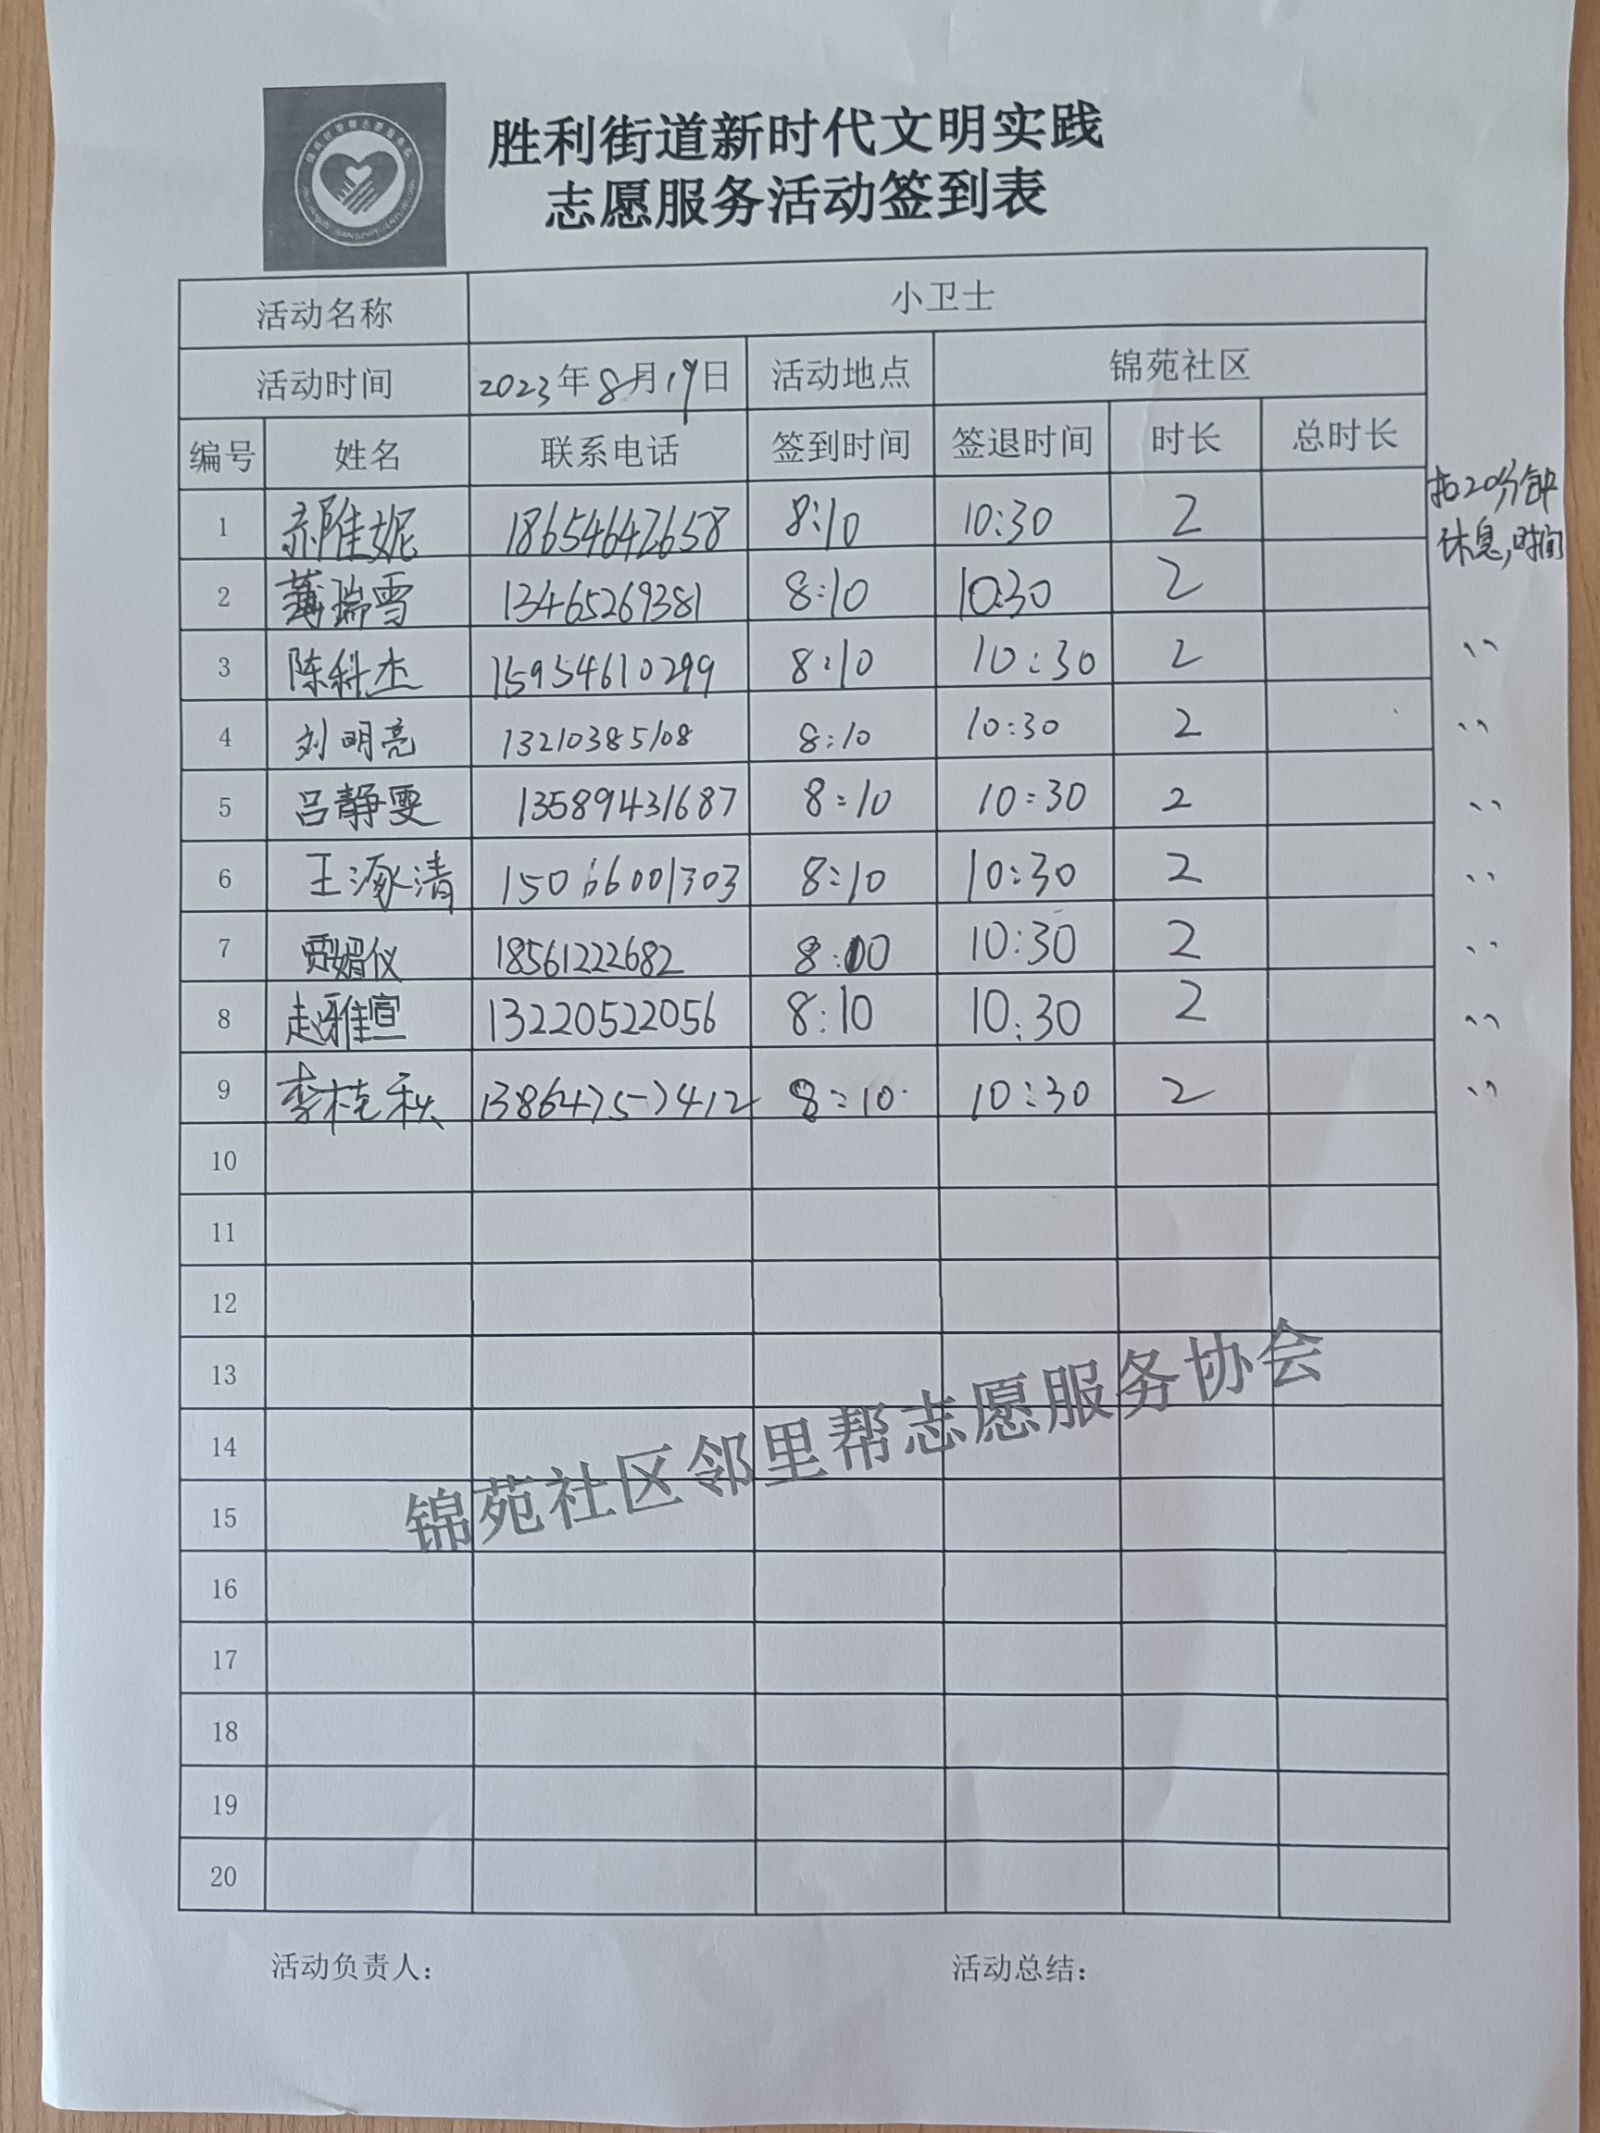 胜利街道新时代文明实践
志愿服务活动签到表
活动名称 小卫士
活动时间 2023年8月19日 活动地点 锦苑社区
编号 姓名 联系电话 签到时间 签退时间 时长 总时长
扣20分钟
休息,时间
1 雅妮 18654642658 8:10 10:30 2
2 薄瑞雪 13465269381 8:10 10:30 2
3 陈科杰 15954610299 8:10 10:30 2 、、
4 刘明亮 13210385108 8:10 10:30 2 、、
5 吕静雯 13589431687 8:10 10:30 2 、、
6 王涿清 15066001303 8:10 10:30 2 、、
7 贾媚仪 18561222682 8:00 10:30 2 、、
8 赵雅宣 13220522056 8:10 10:30 2 、、
9 李桂秋 13864757412 8:10 10:30 2 、、
10
11
12
13
14
15
16
17
18
19
20
锦苑社区邻里帮志愿服务协会
活动负责人: 活动总结: